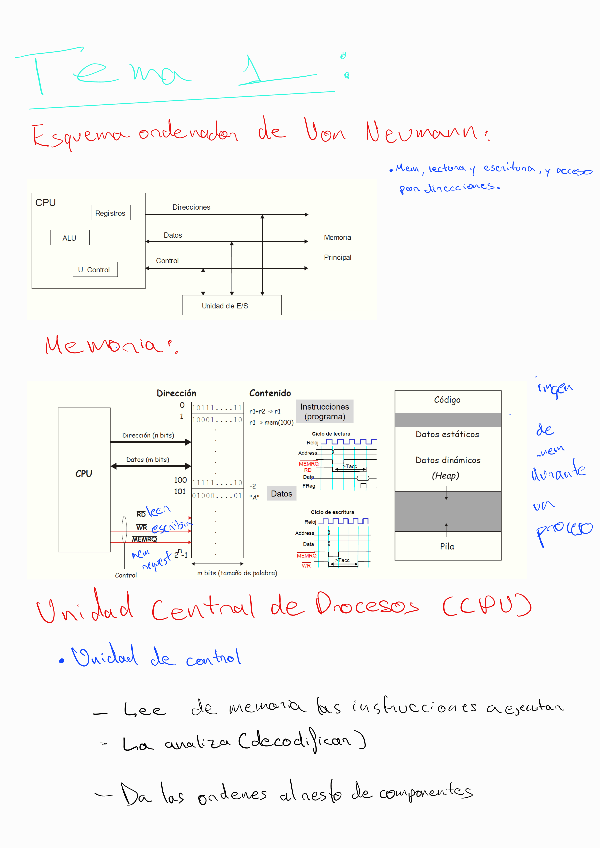 Tema 1:
Esquema ordenador de Von Neumann:
• Mem, lectura y escritura, y acceso
por direcciones.
CPU
Registros
ALU
U. Control
Direcciones
Datos
Control
Memoria
Principal
Unidad de E/S
Memoria:
CPU
Dirección (n bits)
Datos (m bits)
RD leer
WR escribir
MEMRQ
mem
request
Control
Dirección
0
1
100
101
2ⁿ-1
10111....11
10001....10
11111....10
01000....01
m bits (tamaño de palabra)
Contenido
r1-r2 -> r1
r1 -> mem(100)
-2
"A"
Instrucciones
(programa)
Datos
Ciclo de lectura
Reloj
Address
MEMRQ
RD
Data
FRag
Tacc
Ciclo de escritura
Reloj
Address
Data
MEMRQ
WR
Tacc
Código
Datos estáticos
Datos dinámicos
(Heap)
Pila
de
mem
durante
un
proceso
Unidad Central de Procesos (CPU)
• Unidad de control
- Lee de memoria las instrucciones a ejecutar
- La analiza (decodificar)
- Da las ordenes al resto de componentes